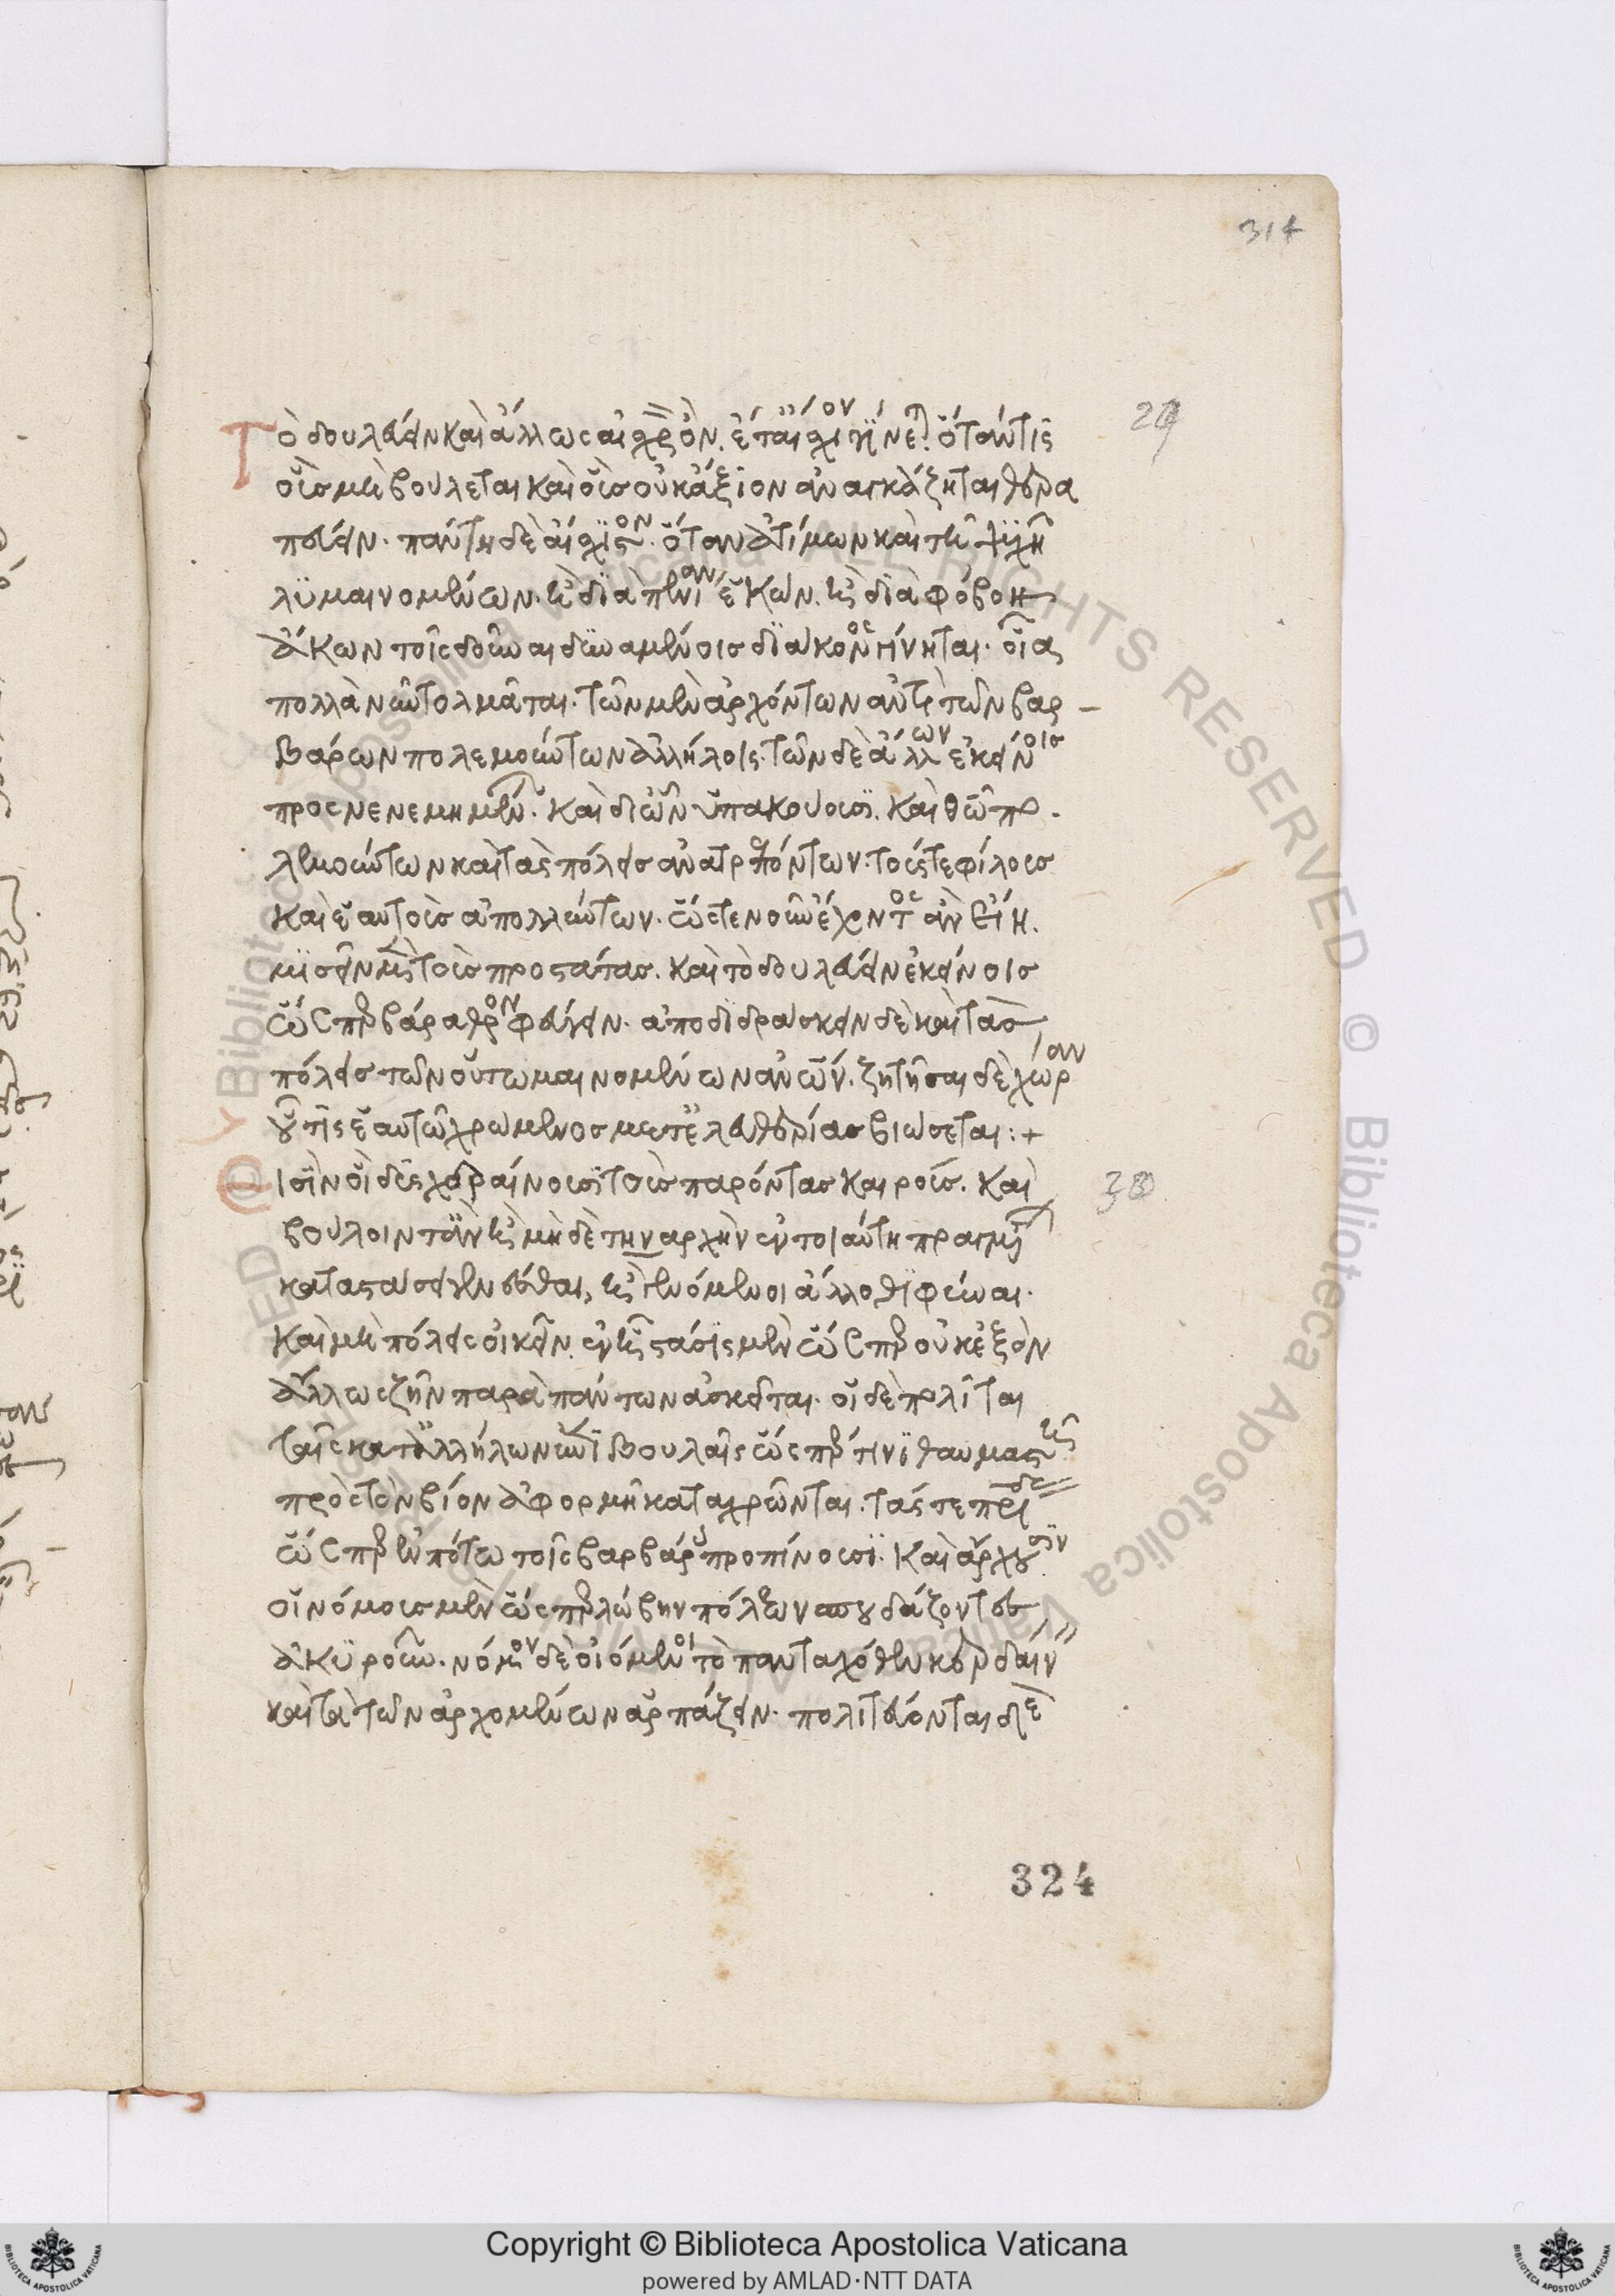 314
29
Τὸ δουλεύειν καὶ ἄλλως αἰσχρὸν. ἔτι αἴσχιον γίνεται ὅταν τις
οὓς μὴ βούλεται καὶ οὓς οὐκ ἄξιον ἀναγκάζηται θερα
πεύειν. πάντη δὲ αἴσχιστον. ὅταν ἀτίμων καὶ τῇ τύχῃ
λυμαινομένων. ἢ διὰ πενίαν ἑκὼν. ἢ διὰ φόβον
ἄκων τοῖς δοῦναι δυναμένοις διάκονος γίνηται. οἷα
πολλὰ νῦν τολμᾶται. τῶν μὲν ἀρχόντων ἀντὶ τῶν βαρ
βάρων πολεμούντων ἀλλήλοις. τῶν δὲ ἄλλων ἐκείνοις
προσνενεμημένων. καὶ δι' ὧν ὑπακούουσι. καὶ θεῷ πο
λεμούντων καὶ τὰς πόλεις ἀνατρεπόντων. τούς τε φίλους
καὶ ἑαυτοὺς ἀπολλύντων. ὥστε νοῦν ἔχοντος ἂν εἴη.
μισεῖν μὲν τοὺς προστάτας. καὶ τὸ δουλεύειν ἐκείνοις
ὥσπερ βάραθρον φεύγειν. ἀποδιδράσκειν δὲ καὶ τὰς
πόλεις τῶν οὕτω μαινομένων ἀνων. ζητῆσαι δὲ χώραν
οὗ τις ἑαυτῷ χρώμενος μετ' ἐλευθερίας βιώσεται :+
30
Εἰσὶν οἳ δυσχεραίνουσι τοὺς παρόντας καιρούς. καὶ
βούλοιντ' ἂν ἢ μηδὲ τὴν ἀρχὴν ἐν τοιαύτῃ πραγμάτων
καταστάσει γενέσθαι, ἢ γενόμενοι ἄλλοθι φεῦναι.
καὶ μὴ πόλεις οἰκεῖν. ἐν αἷς στάσις μὲν ὥσπερ οὐκ ἐξὸν
ἄλλως ζῆν παρὰ πάντων ἀσκεῖται. οἱ δὲ πολῖται
ταῖς κατ' ἀλλήλων ἐπιβουλαῖς ὥσπερ τινὶ θαυμαστῇ
πρὸς τὸν βίον ἀφορμῇ καταχρῶνται. τάς τε πατρίδας
ὥσπερ ἐν πότῳ τοῖς βαρβάροις προπίνουσι. καὶ ἄρχουσιν
οἳ νόμους μὲν ὥσπερ λώβην πόλεων σπουδάζοντες
ἀκυροῦν. νόμον δὲ οἰόμενοι τὸ πανταχόθεν κερδαίνειν
καὶ τὰ τῶν ἀρχομένων ἁρπάζειν. πολιτεύονται δὲ
324
Copyright © Biblioteca Apostolica Vaticana
powered by AMLAD·NTT DATA